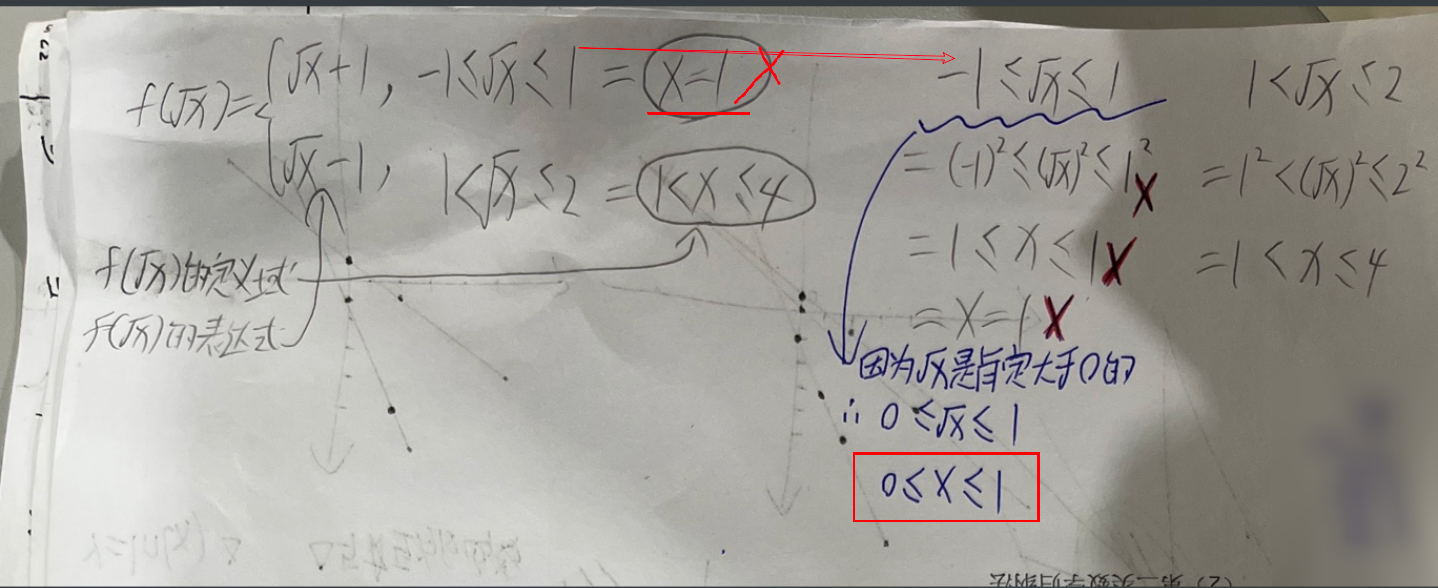 f(√x)={√x+1, -1≤√x≤1 = x=1 x
√x-1, 1<√x≤2 = 1<x≤4
f(√x)的定义域
f(√x)的表达式
-1≤√x≤1
=(-1)²≤(√x)²≤1² x
=1≤x≤1 x
=x=1 x
因为√x是肯定大于0的
∴ 0≤√x≤1
0≤x≤1
1<√x≤2
=1²<(√x)²≤2²
=1<x≤4
(2) 第二类数学归纳法